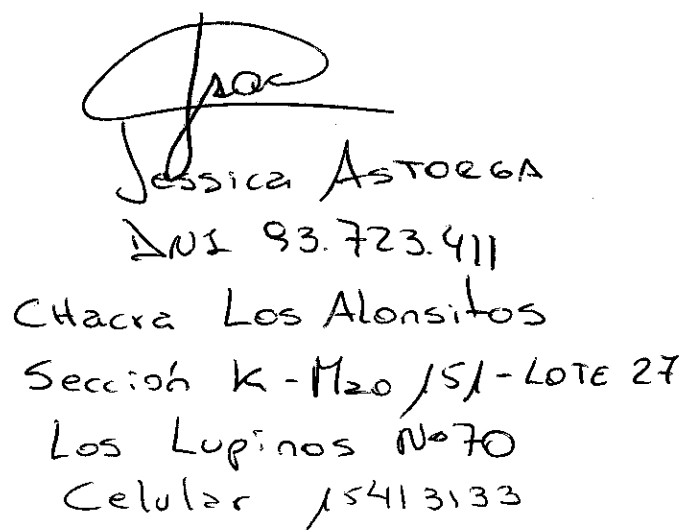 Jessica ASTORGA
DNI 93.723.411
CHacra Los Alonsitos
Sección K - Mzo 151 - LOTE 27
Los Lupinos No 70
Celular 15413133